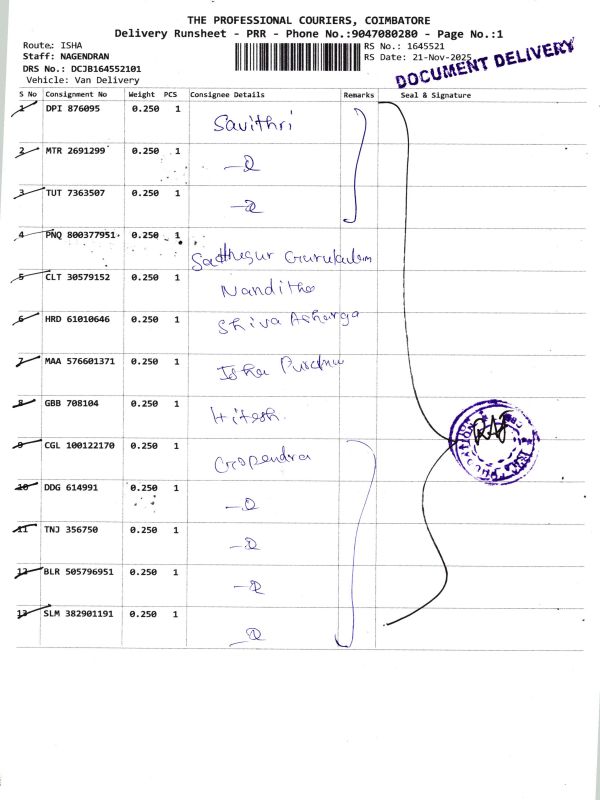 THE PROFESSIONAL COURIERS, COIMBATORE
Delivery Runsheet - PRR - Phone No.:9047080280 - Page No.:1
Route: ISHA
RS No.: 1645521
Staff: NAGENDRAN
RS Date: 21-Nov-2025
DRS No.: DCJB164552101
Vehicle: Van Delivery
DOCUMENT DELIVERY
S No Consignment No Weight PCS Consignee Details Remarks Seal & Signature
1 DPI 876095 0.250 1 Savithri
2 MTR 2691299 0.250 1
3 TUT 7363507 0.250 1
4 PNQ 800377951 0.250 1 Sadhugur Gurukulam
5 CLT 30579152 0.250 1 Nanditha
6 HRD 61010646 0.250 1 Shiva
7 MAA 576601371 0.250 1 Isha
8 GBB 708104 0.250 1 Hitesh.
9 CGL 100122170 0.250 1 Gopendra
10 DDG 614991 0.250 1
11 TNJ 356750 0.250 1
12 BLR 505796951 0.250 1
13 SLM 382901191 0.250 1
RAJ
ISHA FOUNDATION